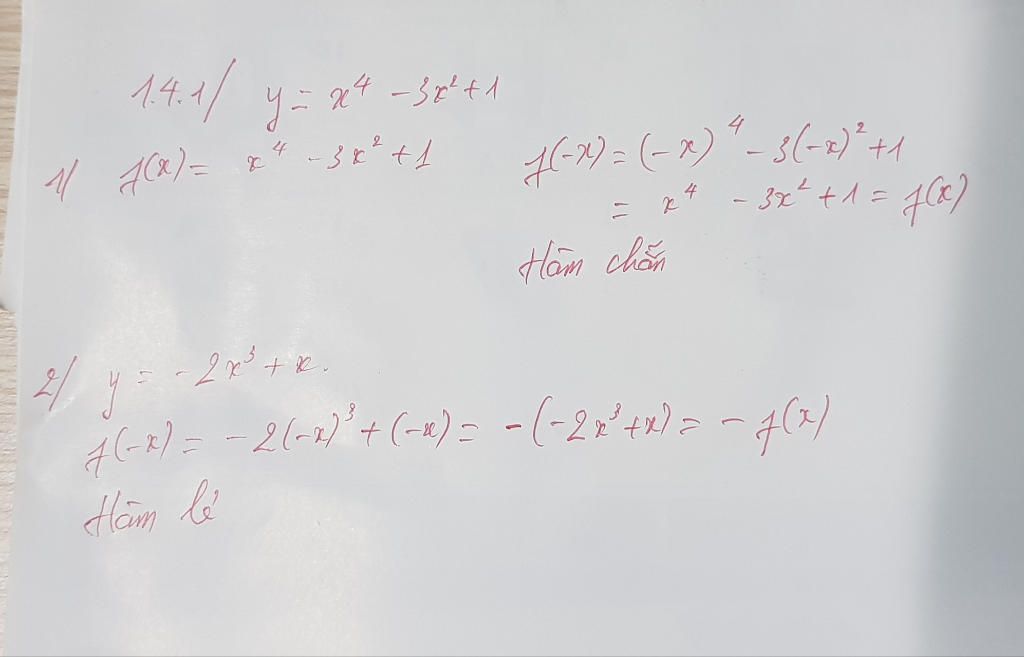 1.4.1/ y = x⁴ - 3x² + 1
1/ f(x) = x⁴ - 3x² + 1
f(-x) = (-x)⁴ - 3(-x)² + 1
= x⁴ - 3x² + 1 = f(x)
Hàm chẵn
2/ y = -2x³ + x.
f(-x) = -2(-x)³ + (-x) = -(-2x³ + x) = -f(x)
Hàm lẻ